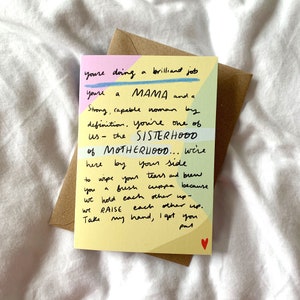 you're doing a brilliant job
you're a MAMA and a
strong, capable woman by
definition. you're one of
us - the SISTERHOOD
of MOTHERHOOD... we're
here by your side
to wipe your tears and brew
you a fresh cuppa because
we hold each other up -
we RAISE each other up.
Take my hand, I got you
pal